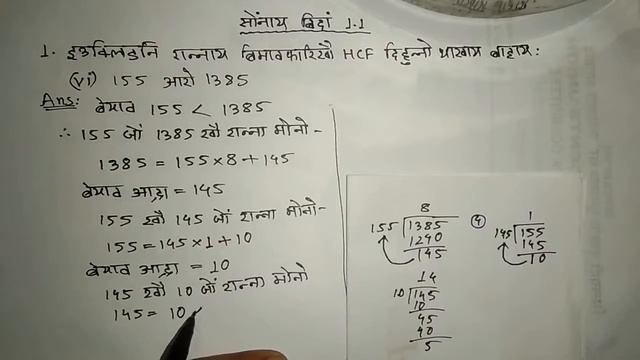 सोंनाय बिदां 1.1
1. इउक्लिडनि रान्नाय बिभाबकारिखौ HCF दिहुन्नो थाखाय बाहाय:
(vi) 155 आरो 1385
Ans: बेयाव 155 < 1385
∴ 155 जों 1385 खौ रान्ना मोनो -
1385 = 155 × 8 + 145
बेयाव आद्रा = 145
155 खौ 145 जों रान्ना मोनो -
155 = 145 × 1 + 10
बेयाव आद्रा = 10
145 खौ 10 जों रान्ना मोनो
145 = 10
8
155 1385
1240
145
1
145 155
145
10
14
10 145
10
45
40
5